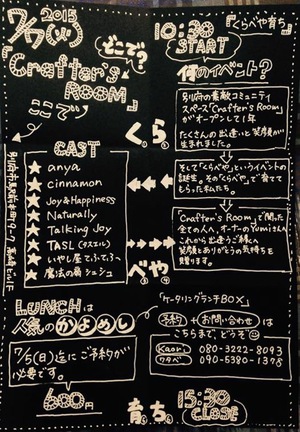 2015
7/7(火)
どこで?
『Crafter's
ROOM』
ここで
別府市
CAST
★ anya
★ cinnamon
★ Joy&Happiness
★ Naturally
★ Talking Joy
★ TASL(タスエル)
★ いやし屋てふてふ
★ 魔法の扇 シェシュ
LUNCHは
人気のかよめし
7/5(日)迄にご予約が
必要です。
600円
く。ら。
べ。や。
育。ち。
『くらべや育ち』
10:30
START
何のイベント?
別府の素敵コミュニティ
スペース『Crafter's Room』
がオープンして1年
たくさんの出逢いと笑顔が
生まれました。
そして『くらべや』というイベントの
誕生。その『くらべや』で育てて
もらった私たち。
『Crafter's Room』で関った
全ての人へ、オーナーのYumiさんへ
これから出逢うご縁へ
笑顔とありがとうの気持ちを
贈ります。
『ケータリングランチBOX』
予約+お問い合わせは
こちらまで、どうぞ
Kaori 080-3222-8093
ワタベ 090-5380-1378
15:30
CLOSE